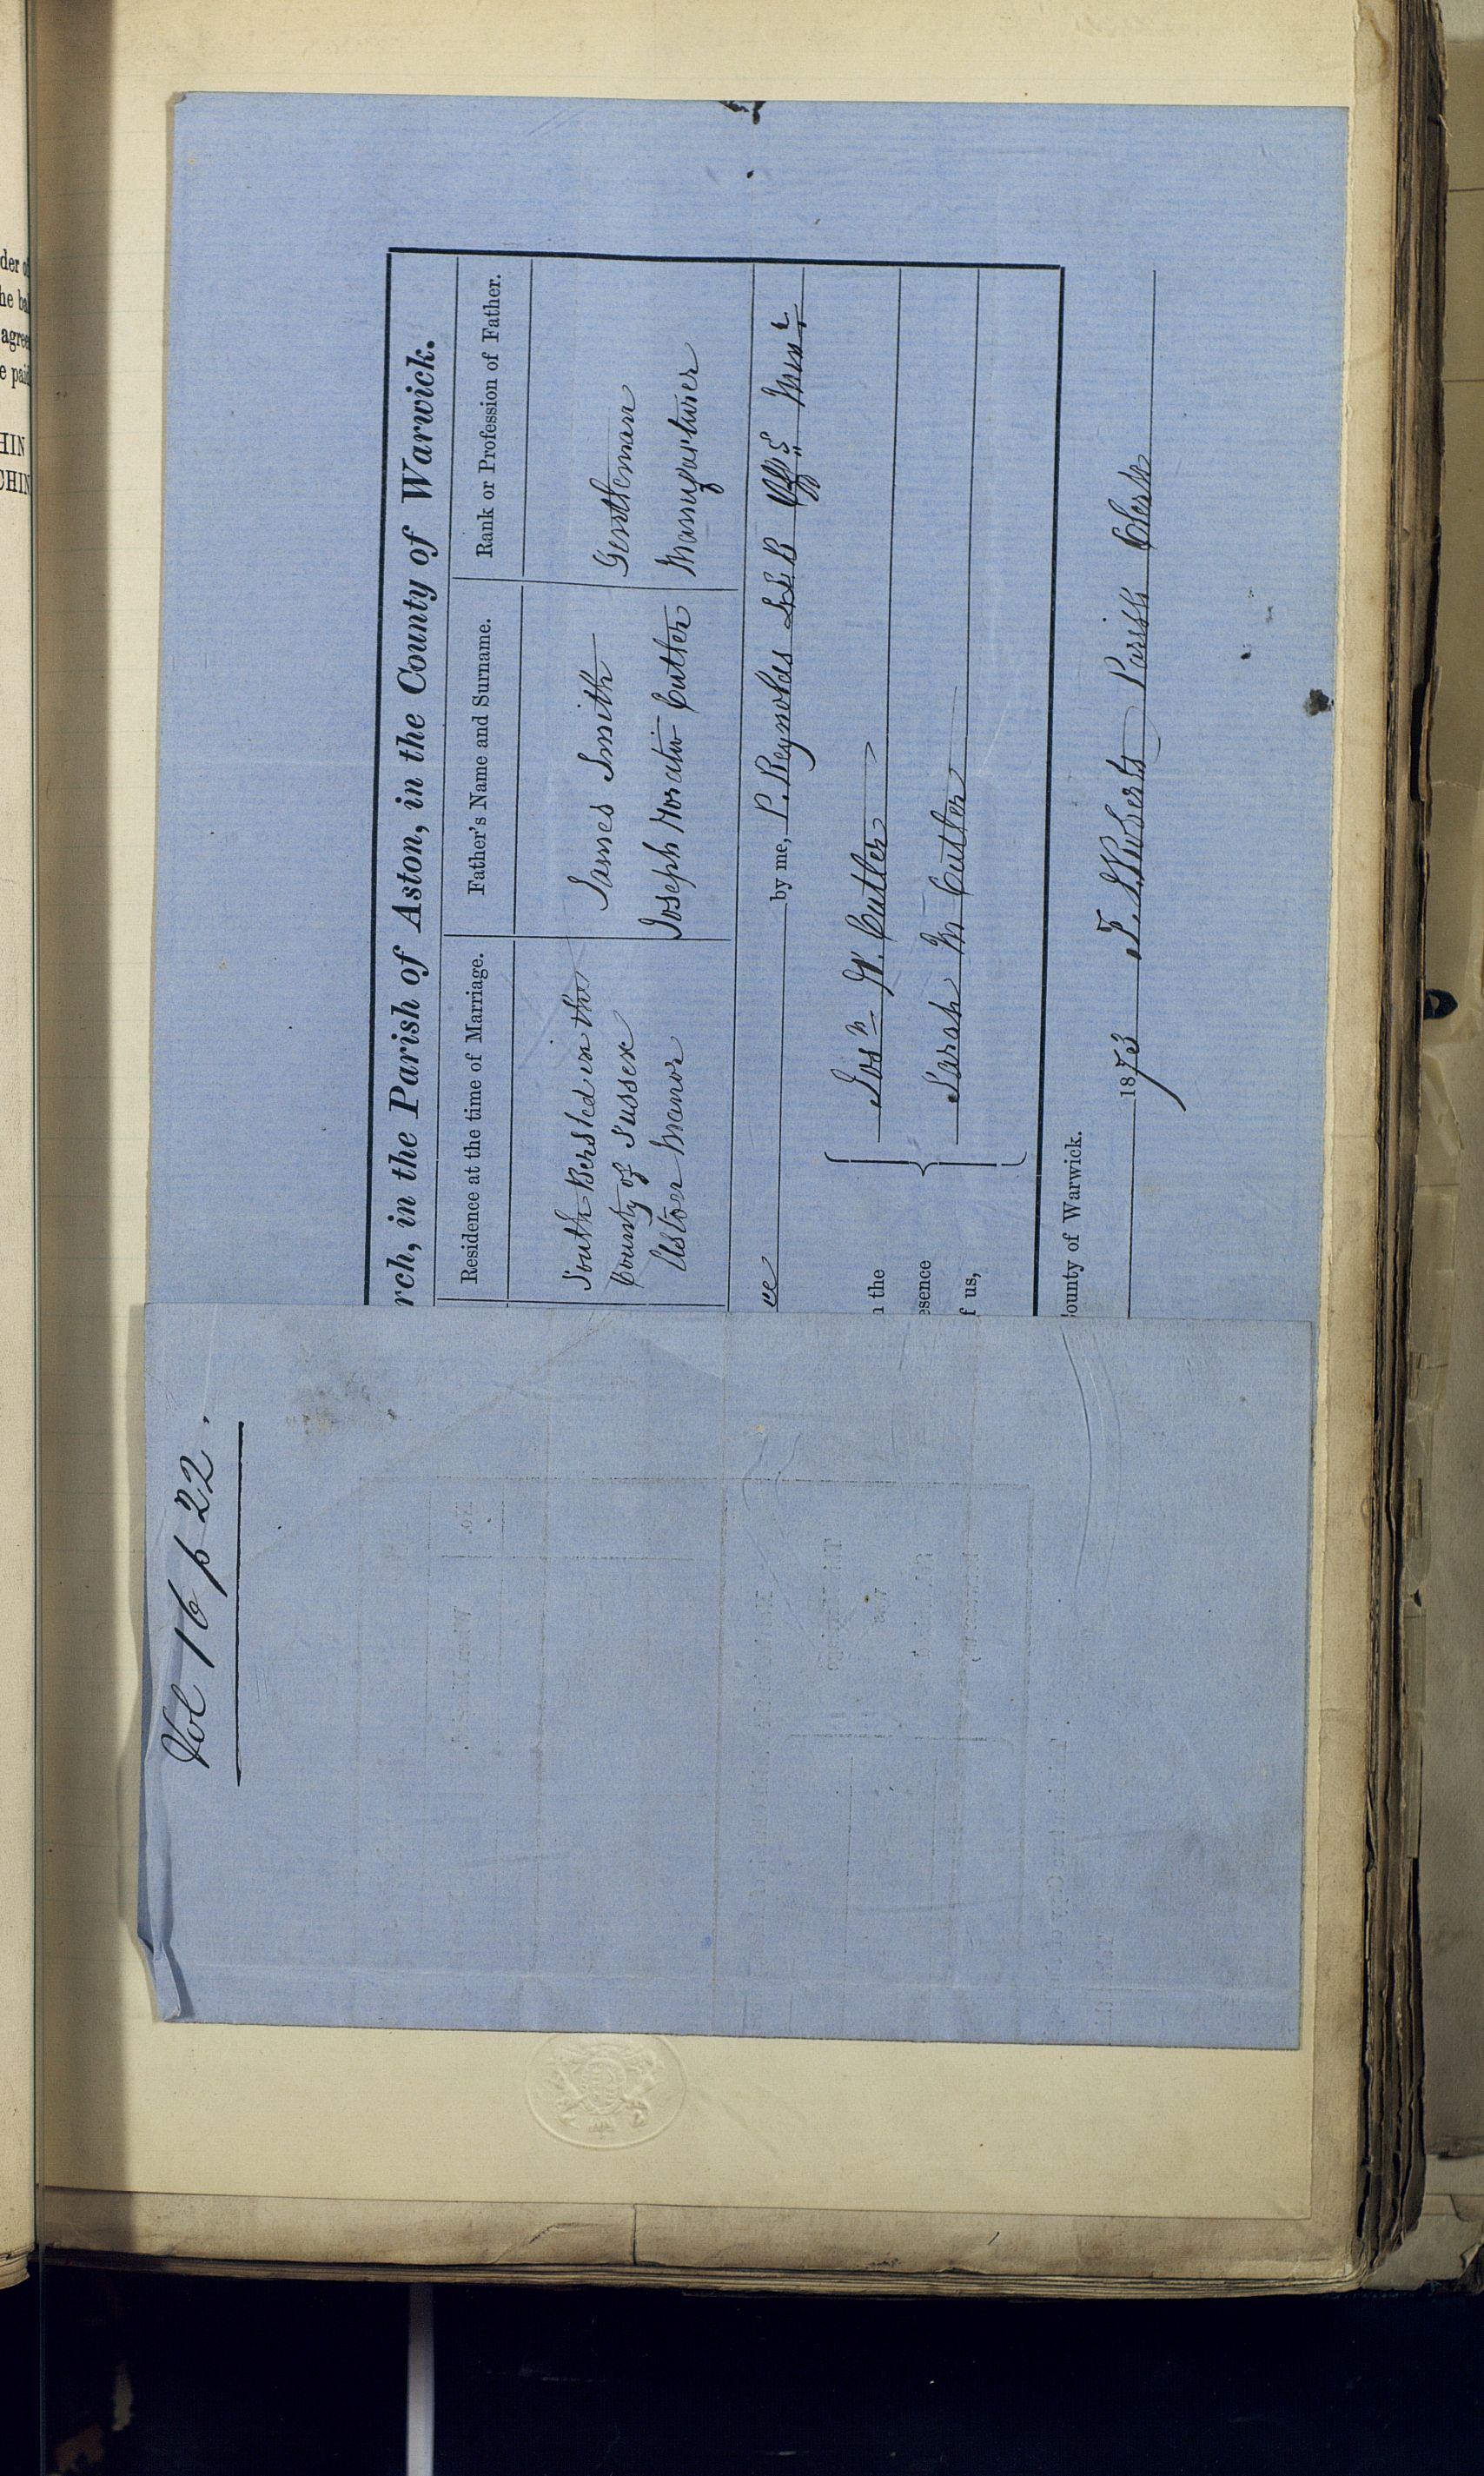 der o
he ba
agree
e paid
HIN
CHIN
Vol 16 p 22.
rch, in the Parish of Aston, in the County of Warwick.
Residence at the time of Marriage. Father's Name and Surname. Rank or Profession of Father.
South Bersted in the
County of Sussex James Smith Gentleman
Aston Manor Joseph Horatio Cutler Manufacturer
ce by me, P. Reynolds LLB Offg Minr
n the Josh H. Cutler
esence
f us, Sarah M Cutler
County of Warwick.
1873 T. J. Roberts Parish Clerk